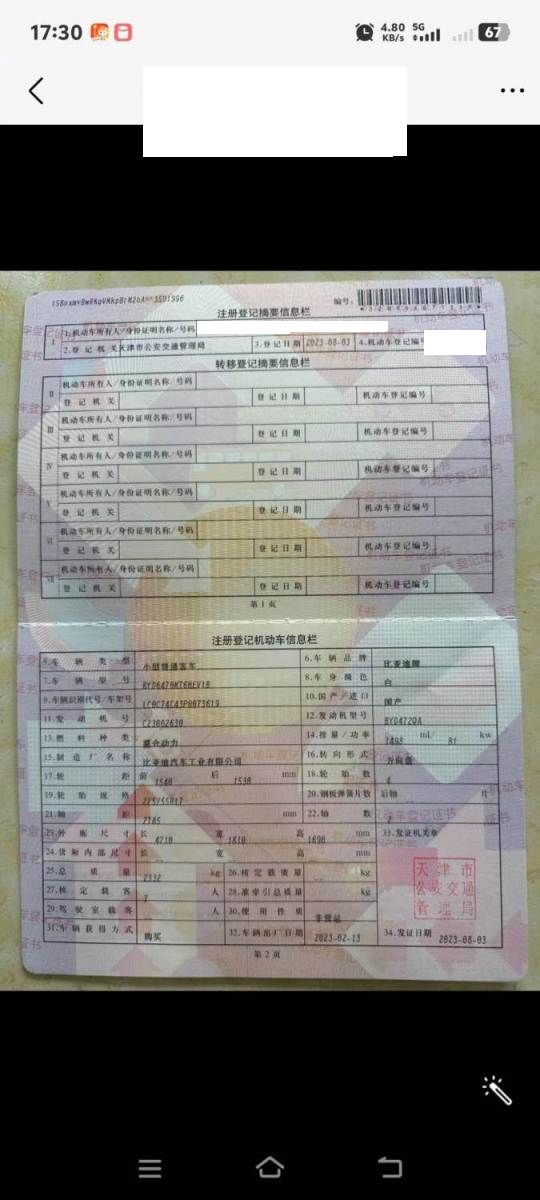 17:30
4.80 KB/s 5G 67
编号:
注册登记摘要信息栏
I 1.机动车所有人/身份证明名称/号码
2.登记机关 天津市公安交通管理局 3.登记日期 2023-08-03 4.机动车登记编号
转移登记摘要信息栏
II 机动车所有人/身份证明名称/号码
登记机关 登记日期 机动车登记编号
III 机动车所有人/身份证明名称/号码
登记机关 登记日期 机动车登记编号
IV 机动车所有人/身份证明名称/号码
登记机关 登记日期 机动车登记编号
V 机动车所有人/身份证明名称/号码
登记机关 登记日期 机动车登记编号
VI 机动车所有人/身份证明名称/号码
登记机关 登记日期 机动车登记编号
VII 机动车所有人/身份证明名称/号码
登记机关 登记日期 机动车登记编号
第1页
注册登记机动车信息栏
5.车辆类型 小型普通客车 6.车辆品牌 比亚迪牌
7.车辆型号 8.车身颜色 白
9.车辆识别代号/车架号 10.国产/进口 国产
11.发动机号 12.发动机型号 BYD472QA
13.燃料种类 混合动力 14.排量/功率 1498 ml/ 81 kw
15.制造厂名称 比亚迪汽车工业有限公司 16.转向形式 方向盘
17.轮距 前 1540 后 1530 mm 18.轮胎数 4
19.轮胎规格 225/55R17 20.钢板弹簧片数 后轴 片
21.轴距 2765 mm 22.轴数 2
23.外廓尺寸 长 4710 宽 1810 高 1690 mm 33.发证机关章
24.货厢内部尺寸 长 宽 高 mm
25.总质量 2332 kg 26.核定载质量 kg
27.核定载客 7 人 28.准牵引总质量 kg
29.驾驶室载客 人 30.使用性质 非营运
31.车辆获得方式 购买 32.车辆出厂日期 2023-02-13 34.发证日期 2023-08-03
天津市
公安交通
管理局
第2页